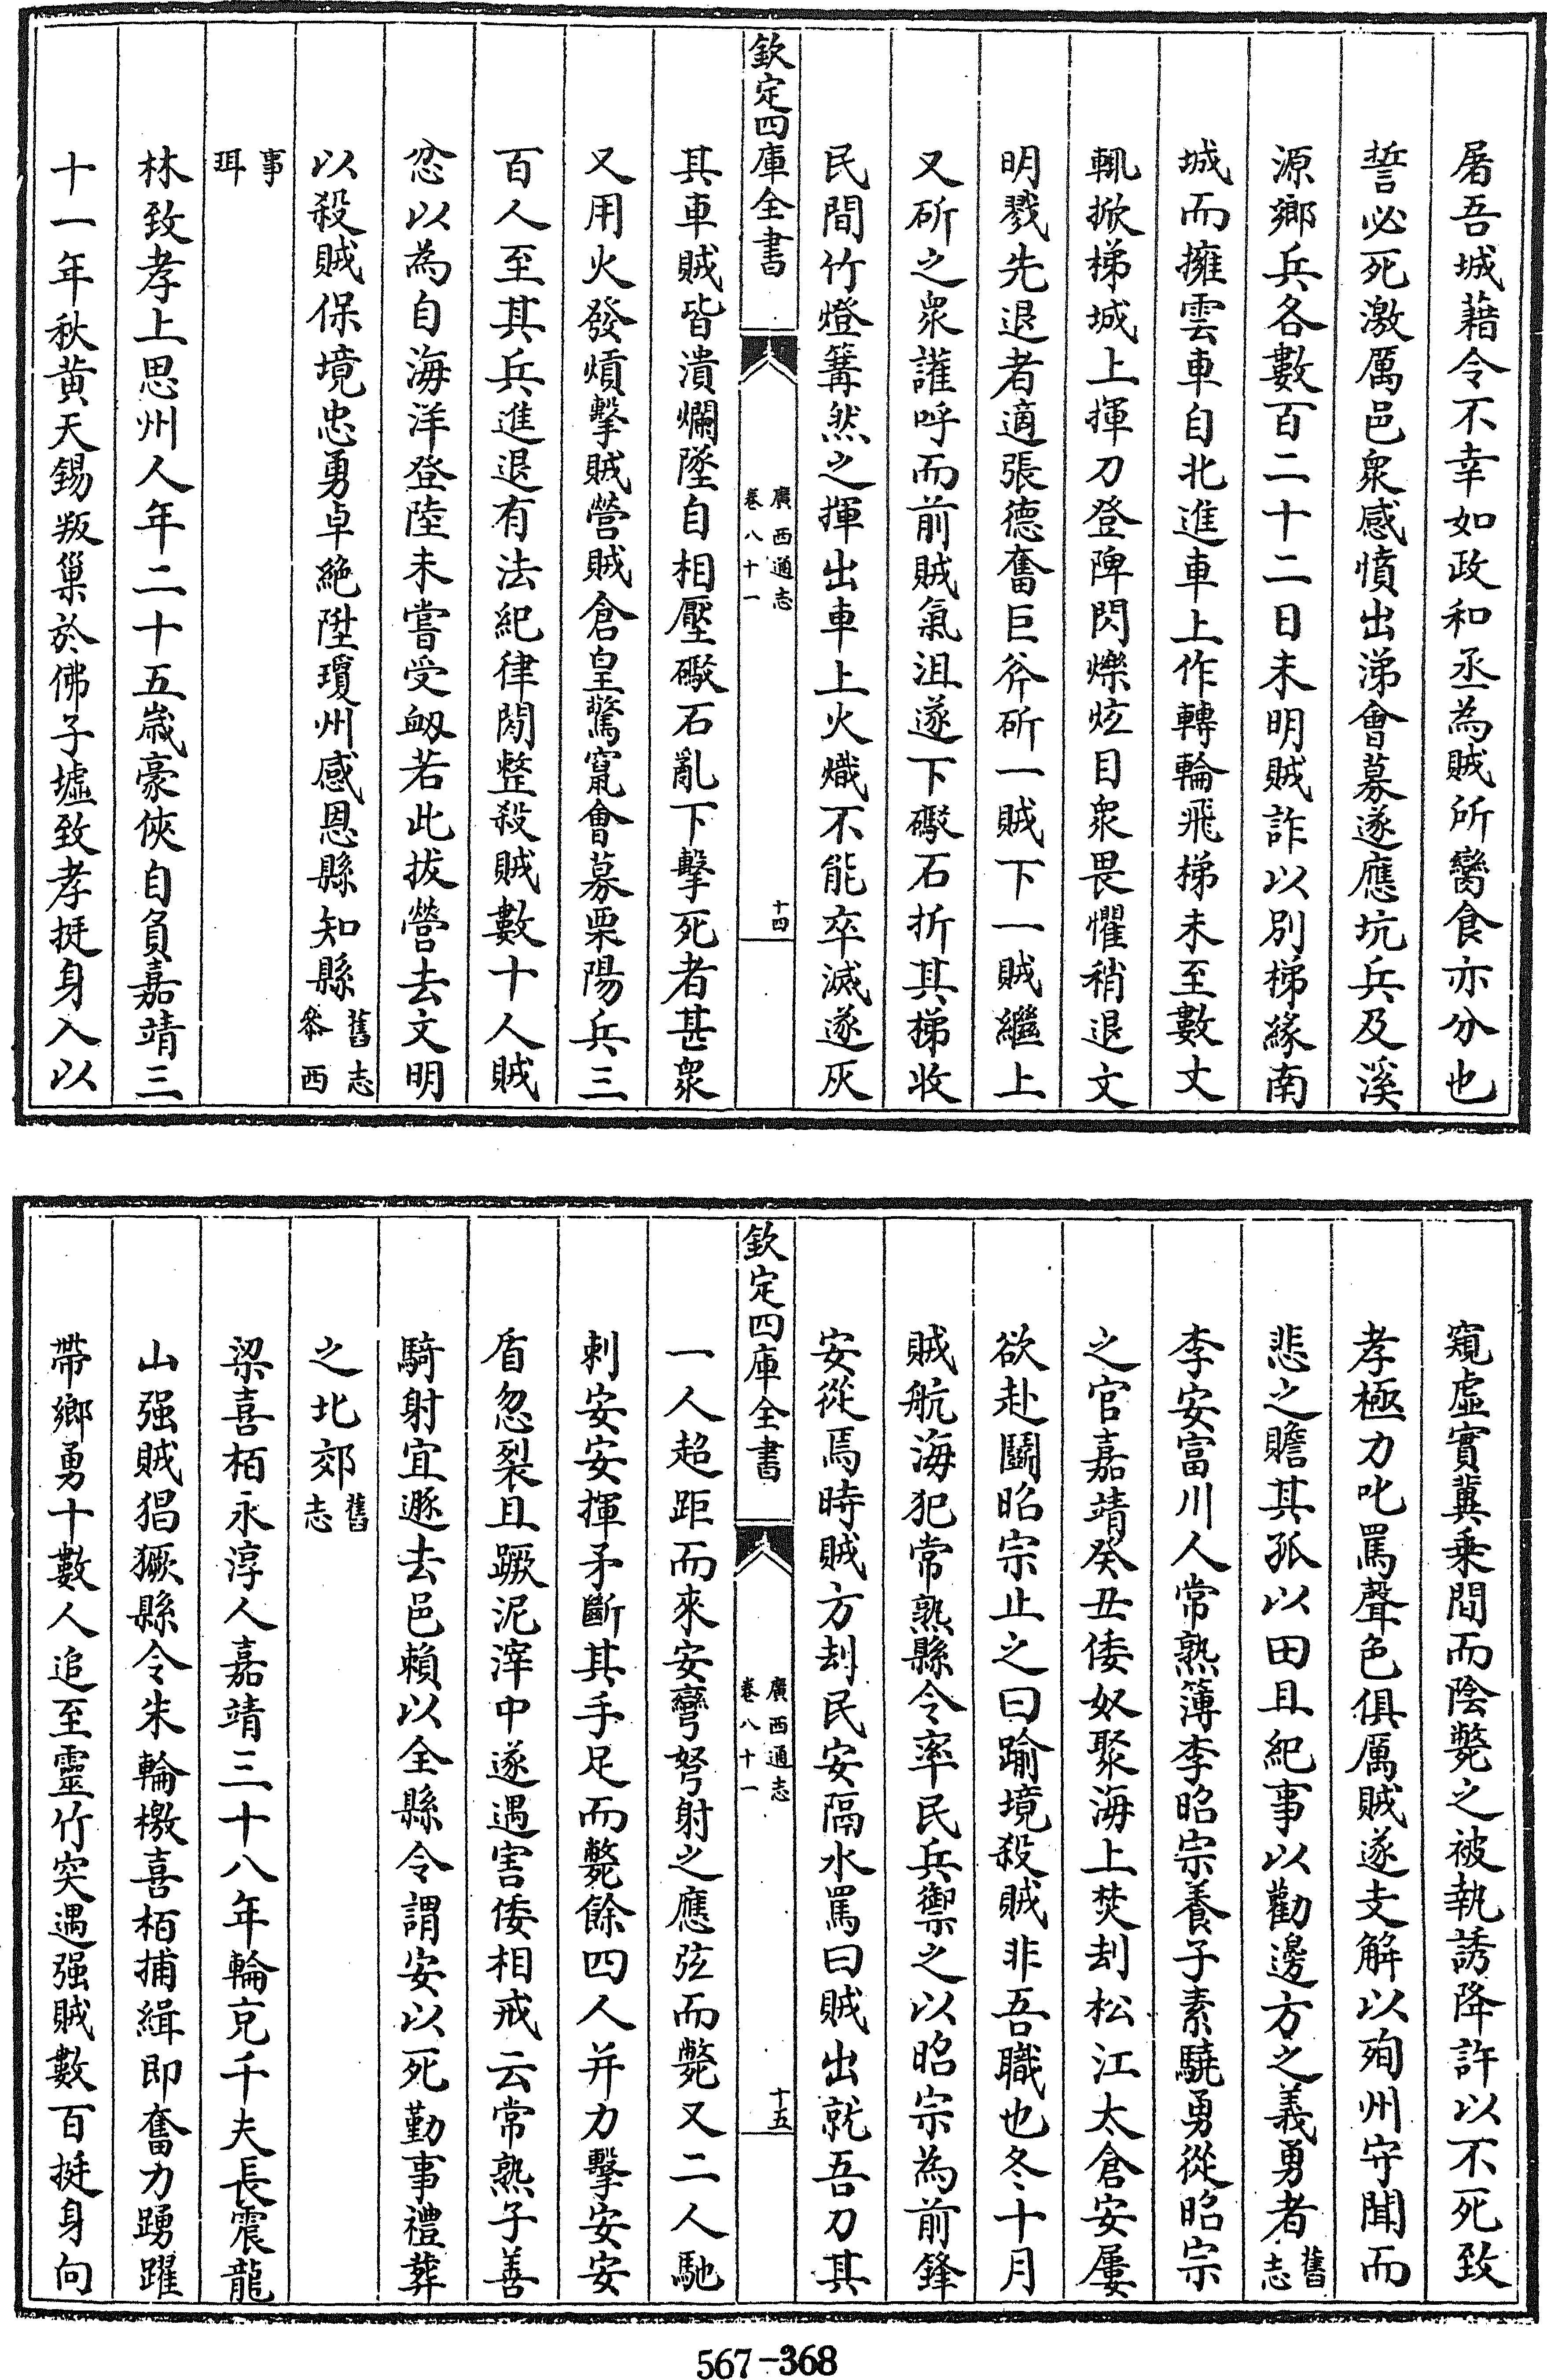 屠吾城藉令不幸如政和丞為賊所臠食亦分也
誓必死激厲邑衆感憤出涕會募遂應坑兵及溪
源鄉兵各數百二十二日未明賊詐以別梯緣南
城而擁雲車自北進車上作轉輪飛梯未至數丈
輒掀梯城上揮刀登陴閃爍炫目衆畏懼稍退文
明戮先退者適張德奮巨斧斫一賊下一賊繼上
又斫之衆讙呼而前賊氣沮遂下礮石折其梯收
民間竹燈篝然之揮出車上火熾不能卒滅遂灰
欽定四庫全書
廣西通志
卷八十一
十四
其車賊皆潰爛墜自相壓礮石亂下擊死者甚衆
又用火發熕擊賊營賊倉皇驚竄會募栗陽兵三
百人至其兵進退有法紀律閑整殺賊數十人賊
忿以為自海洋登陸未嘗受衂若此拔營去文明
以殺賊保境忠勇卓絶陞瓊州感恩縣知縣舊志
叅西
事
珥
林致孝上思州人年二十五歲豪俠自負嘉靖三
十一年秋黄天錫叛巢於佛子墟致孝挺身入以
窺虛實冀乗間而陰斃之被執誘降許以不死致
孝極力叱罵聲色俱厲賊遂支解以殉州守聞而
悲之贍其孤以田且紀事以勸邊方之義勇者舊
志
李安富川人常熟簿李昭宗養子素驍勇從昭宗
之官嘉靖癸丑倭奴聚海上焚刦松江太倉安屢
欲赴鬭昭宗止之曰踰境殺賊非吾職也冬十月
賊航海犯常熟縣令率民兵禦之以昭宗為前鋒
安從焉時賊方刦民安隔水罵曰賊出就吾刀其
欽定四庫全書
廣西通志
卷八十一
十五
一人超距而來安彎弩射之應弦而斃又二人馳
刺安安揮矛斷其手足而斃餘四人并力擊安安
盾忽裂且蹶泥滓中遂遇害倭相戒云常熟子善
騎射宜遯去邑賴以全縣令謂安以死勤事禮葬
之北郊舊
志
梁喜栢永淳人嘉靖三十八年輪克千夫長震龍
山强賊猖獗縣令朱輪檄喜栢捕緝即奮力踴躍
帶鄉勇十數人追至靈竹突遇强賊數百挺身向
567-368